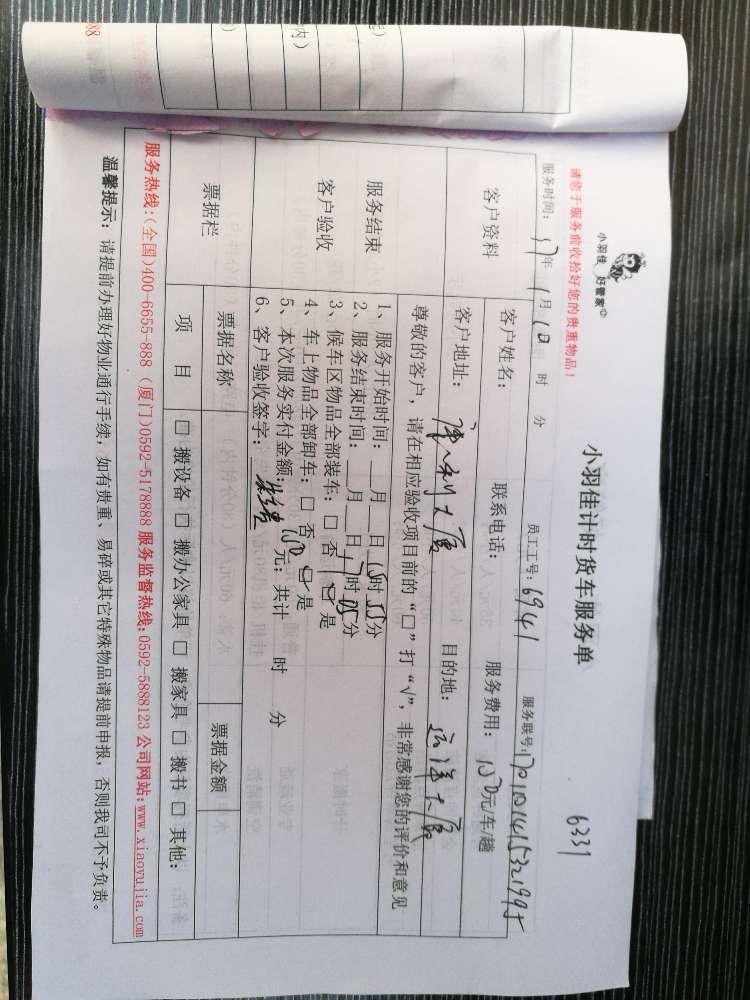 小羽佳 好管家
小羽佳计时货车服务单
6331
请您于服务前收拾好您的贵重物品！
服务时间：17年 1月10日 时 分 员工工号：6941 服务联号：
客户资料
客户姓名： 联系电话： 服务费用：150元/车/趟
客户地址： 大厦 目的地：远洋大厦
尊敬的客户，请在相应验收项目前的“□”打“√”，非常感谢您的评价和意见
服务结束
客户验收
1、服务开始时间：__月__日 时 分
2、服务结束时间：__月__日17时05分
3、候车区物品全部装车：□ 否 □ 是
4、车上物品全部卸车：□ 否 □ 是
5、本次服务实付金额：150元；共计 时 分
6、客户验收签字：
票据栏
票据名称 票据金额
项 目 □ 搬设备 □ 搬办公家具 □ 搬家具 □ 搬书 □ 其他：
服务热线：(全国)400-6655-888 (厦门)0592-5178888 服务监督热线：0592-5888123 公司网站：www.xiaoyujia.com
温馨提示：请提前办理好物业通行手续，如有贵重、易碎或其它特殊物品请提前申报，否则我司不予负责。